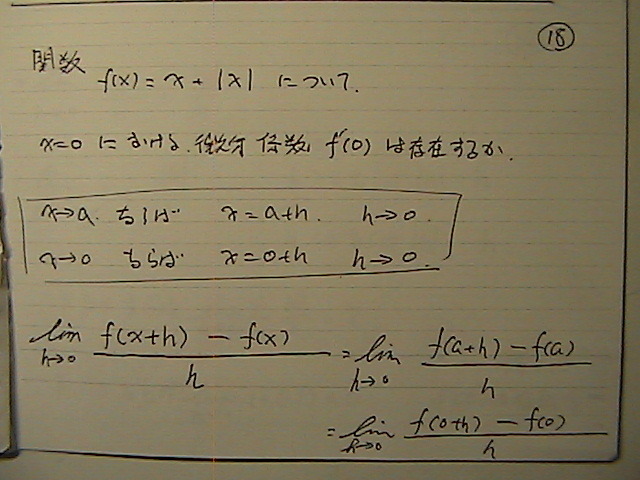 ⑱
関数
f(x) = x + |x| について.
x=0 における 微分係数 f'(0) は存在するか.
x→a. ならば x = a+h. h→0.
x→0 ならば x = 0+h h→0.
lim h→0 f(x+h) - f(x) / h = lim h→0 f(a+h) - f(a) / h
= lim h→0 f(0+h) - f(0) / h